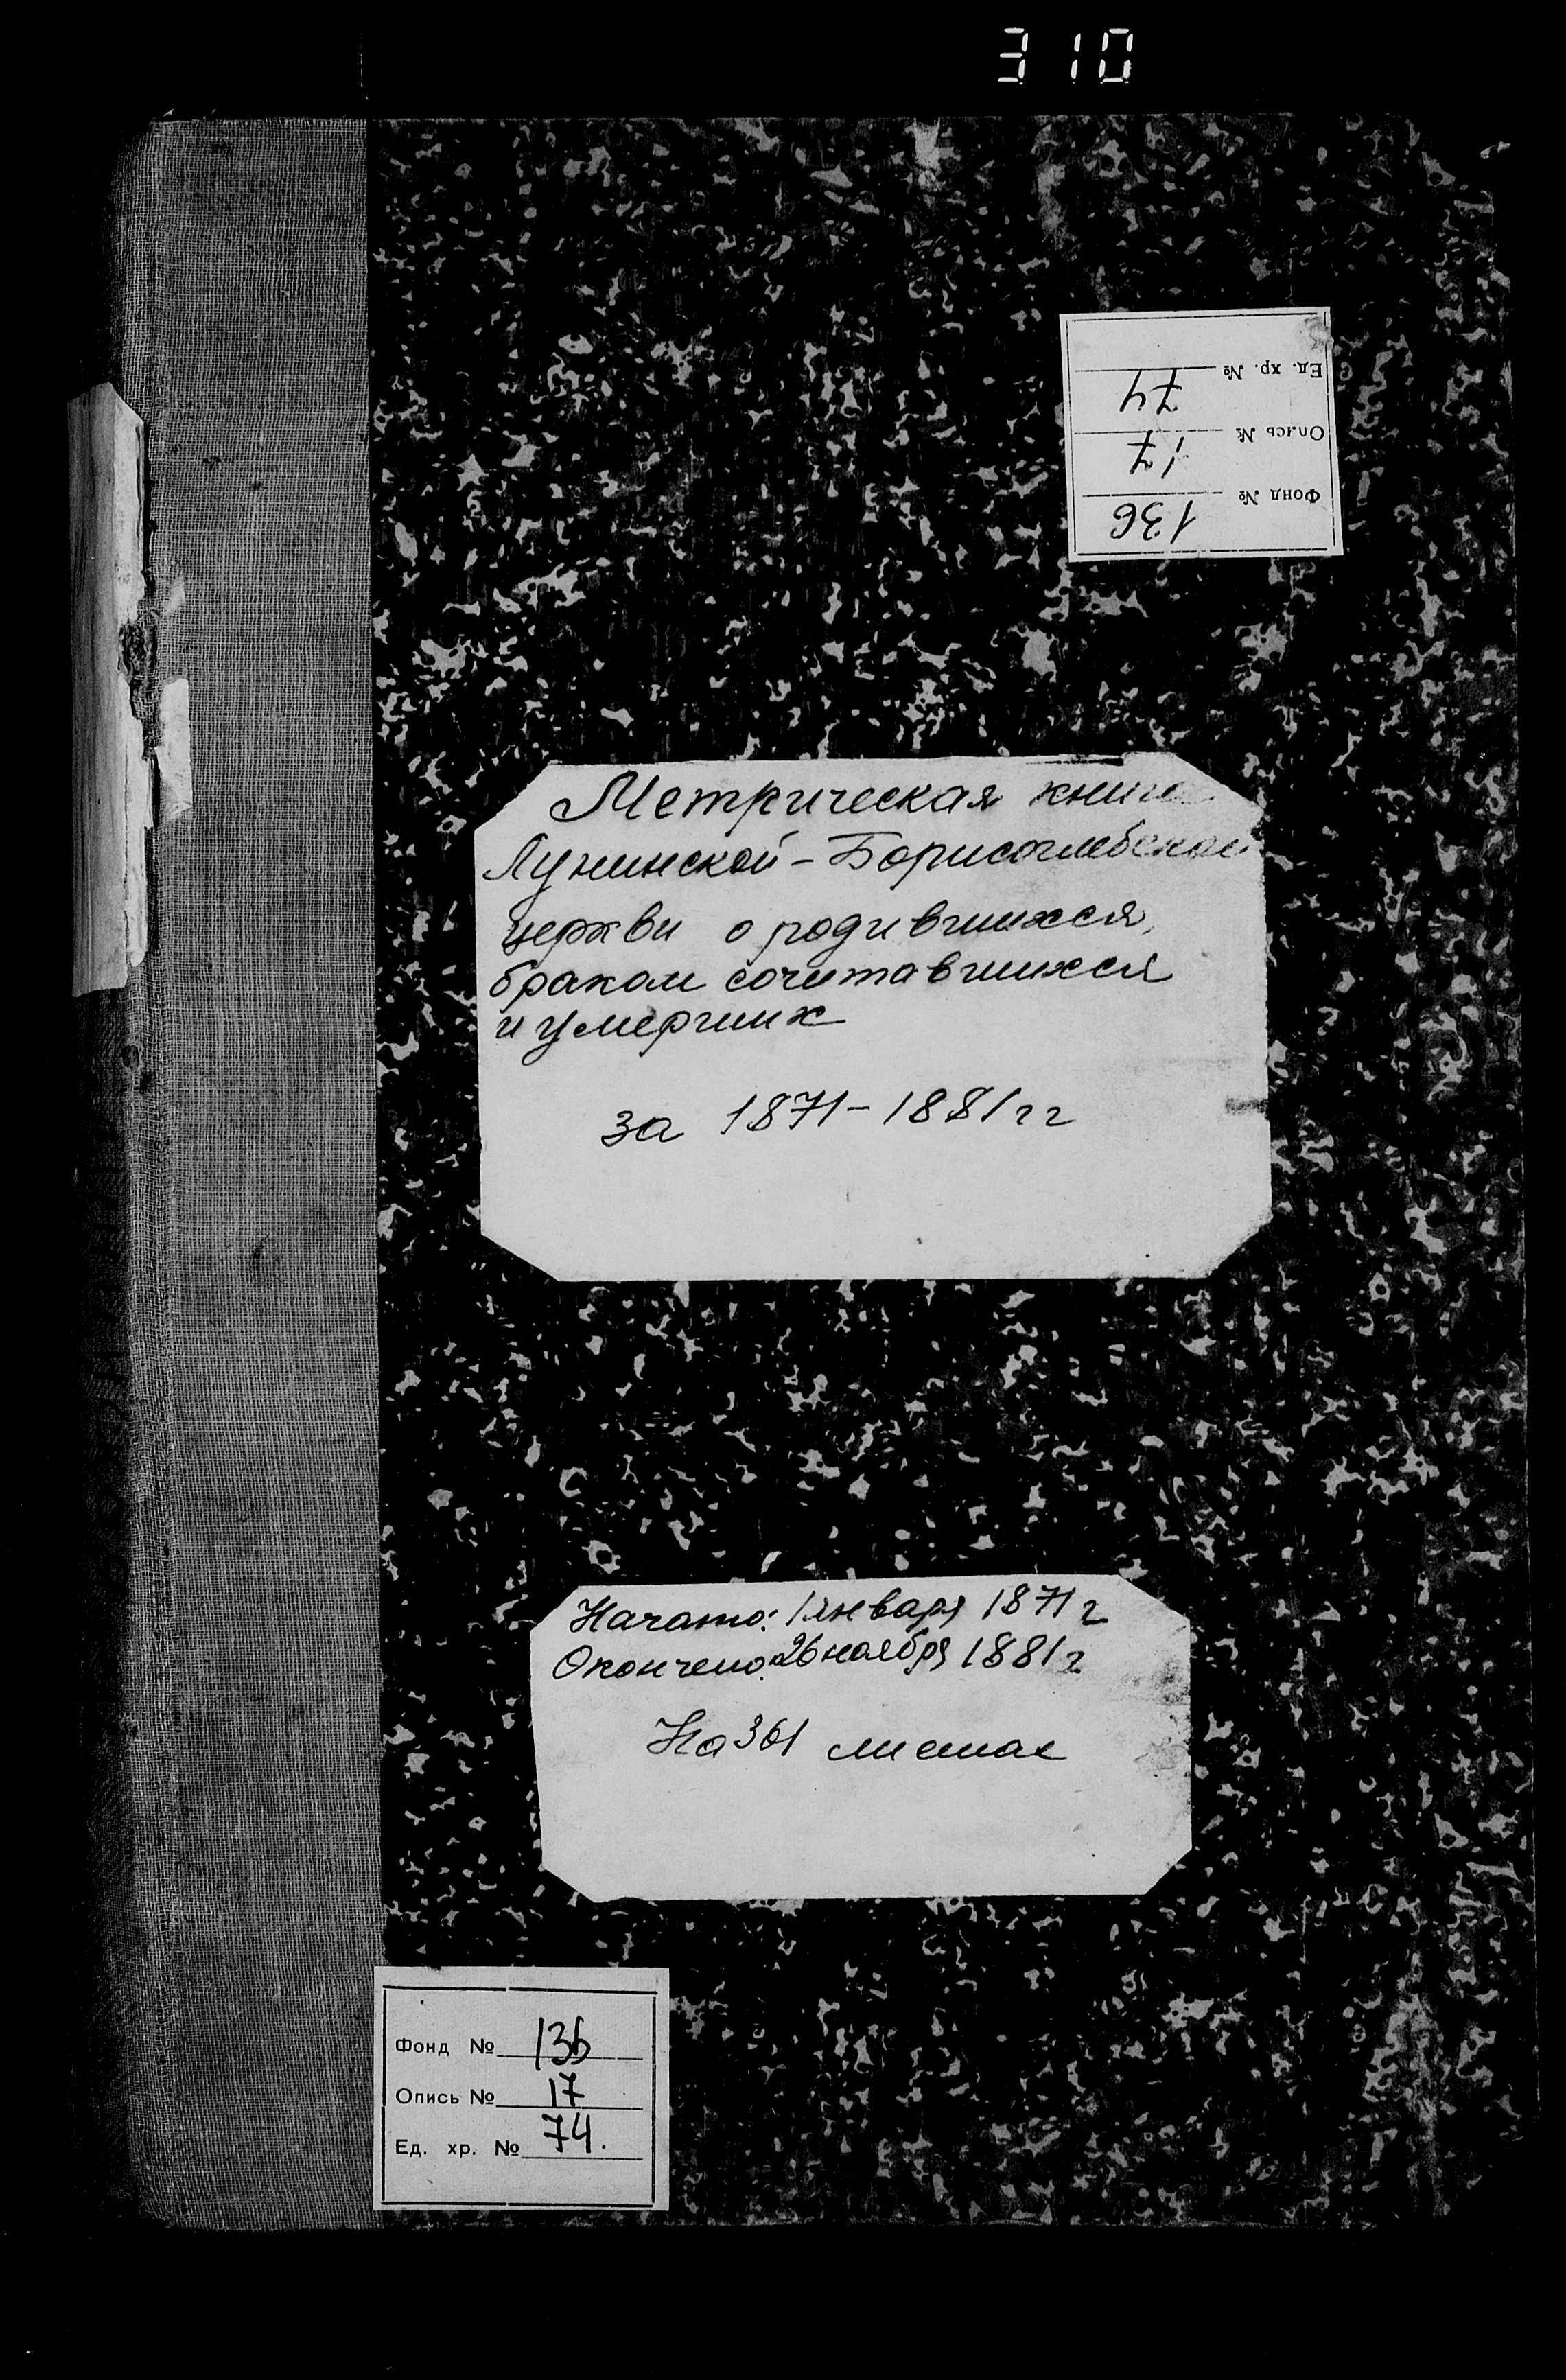 310
Ед. хр. № 74
Опись № 17
Фонд № 136
Метрическая книга
Лунинской - Борисоглебской
церкви о родившихся,
браком сочитавшихся
и умерших
за 1871 - 1881 гг
Начато: 1 января 1871 г
Окончено: 26 ноября 1881 г
На 361 листах
Фонд № 136
Опись № 17
Ед. хр. № 74.